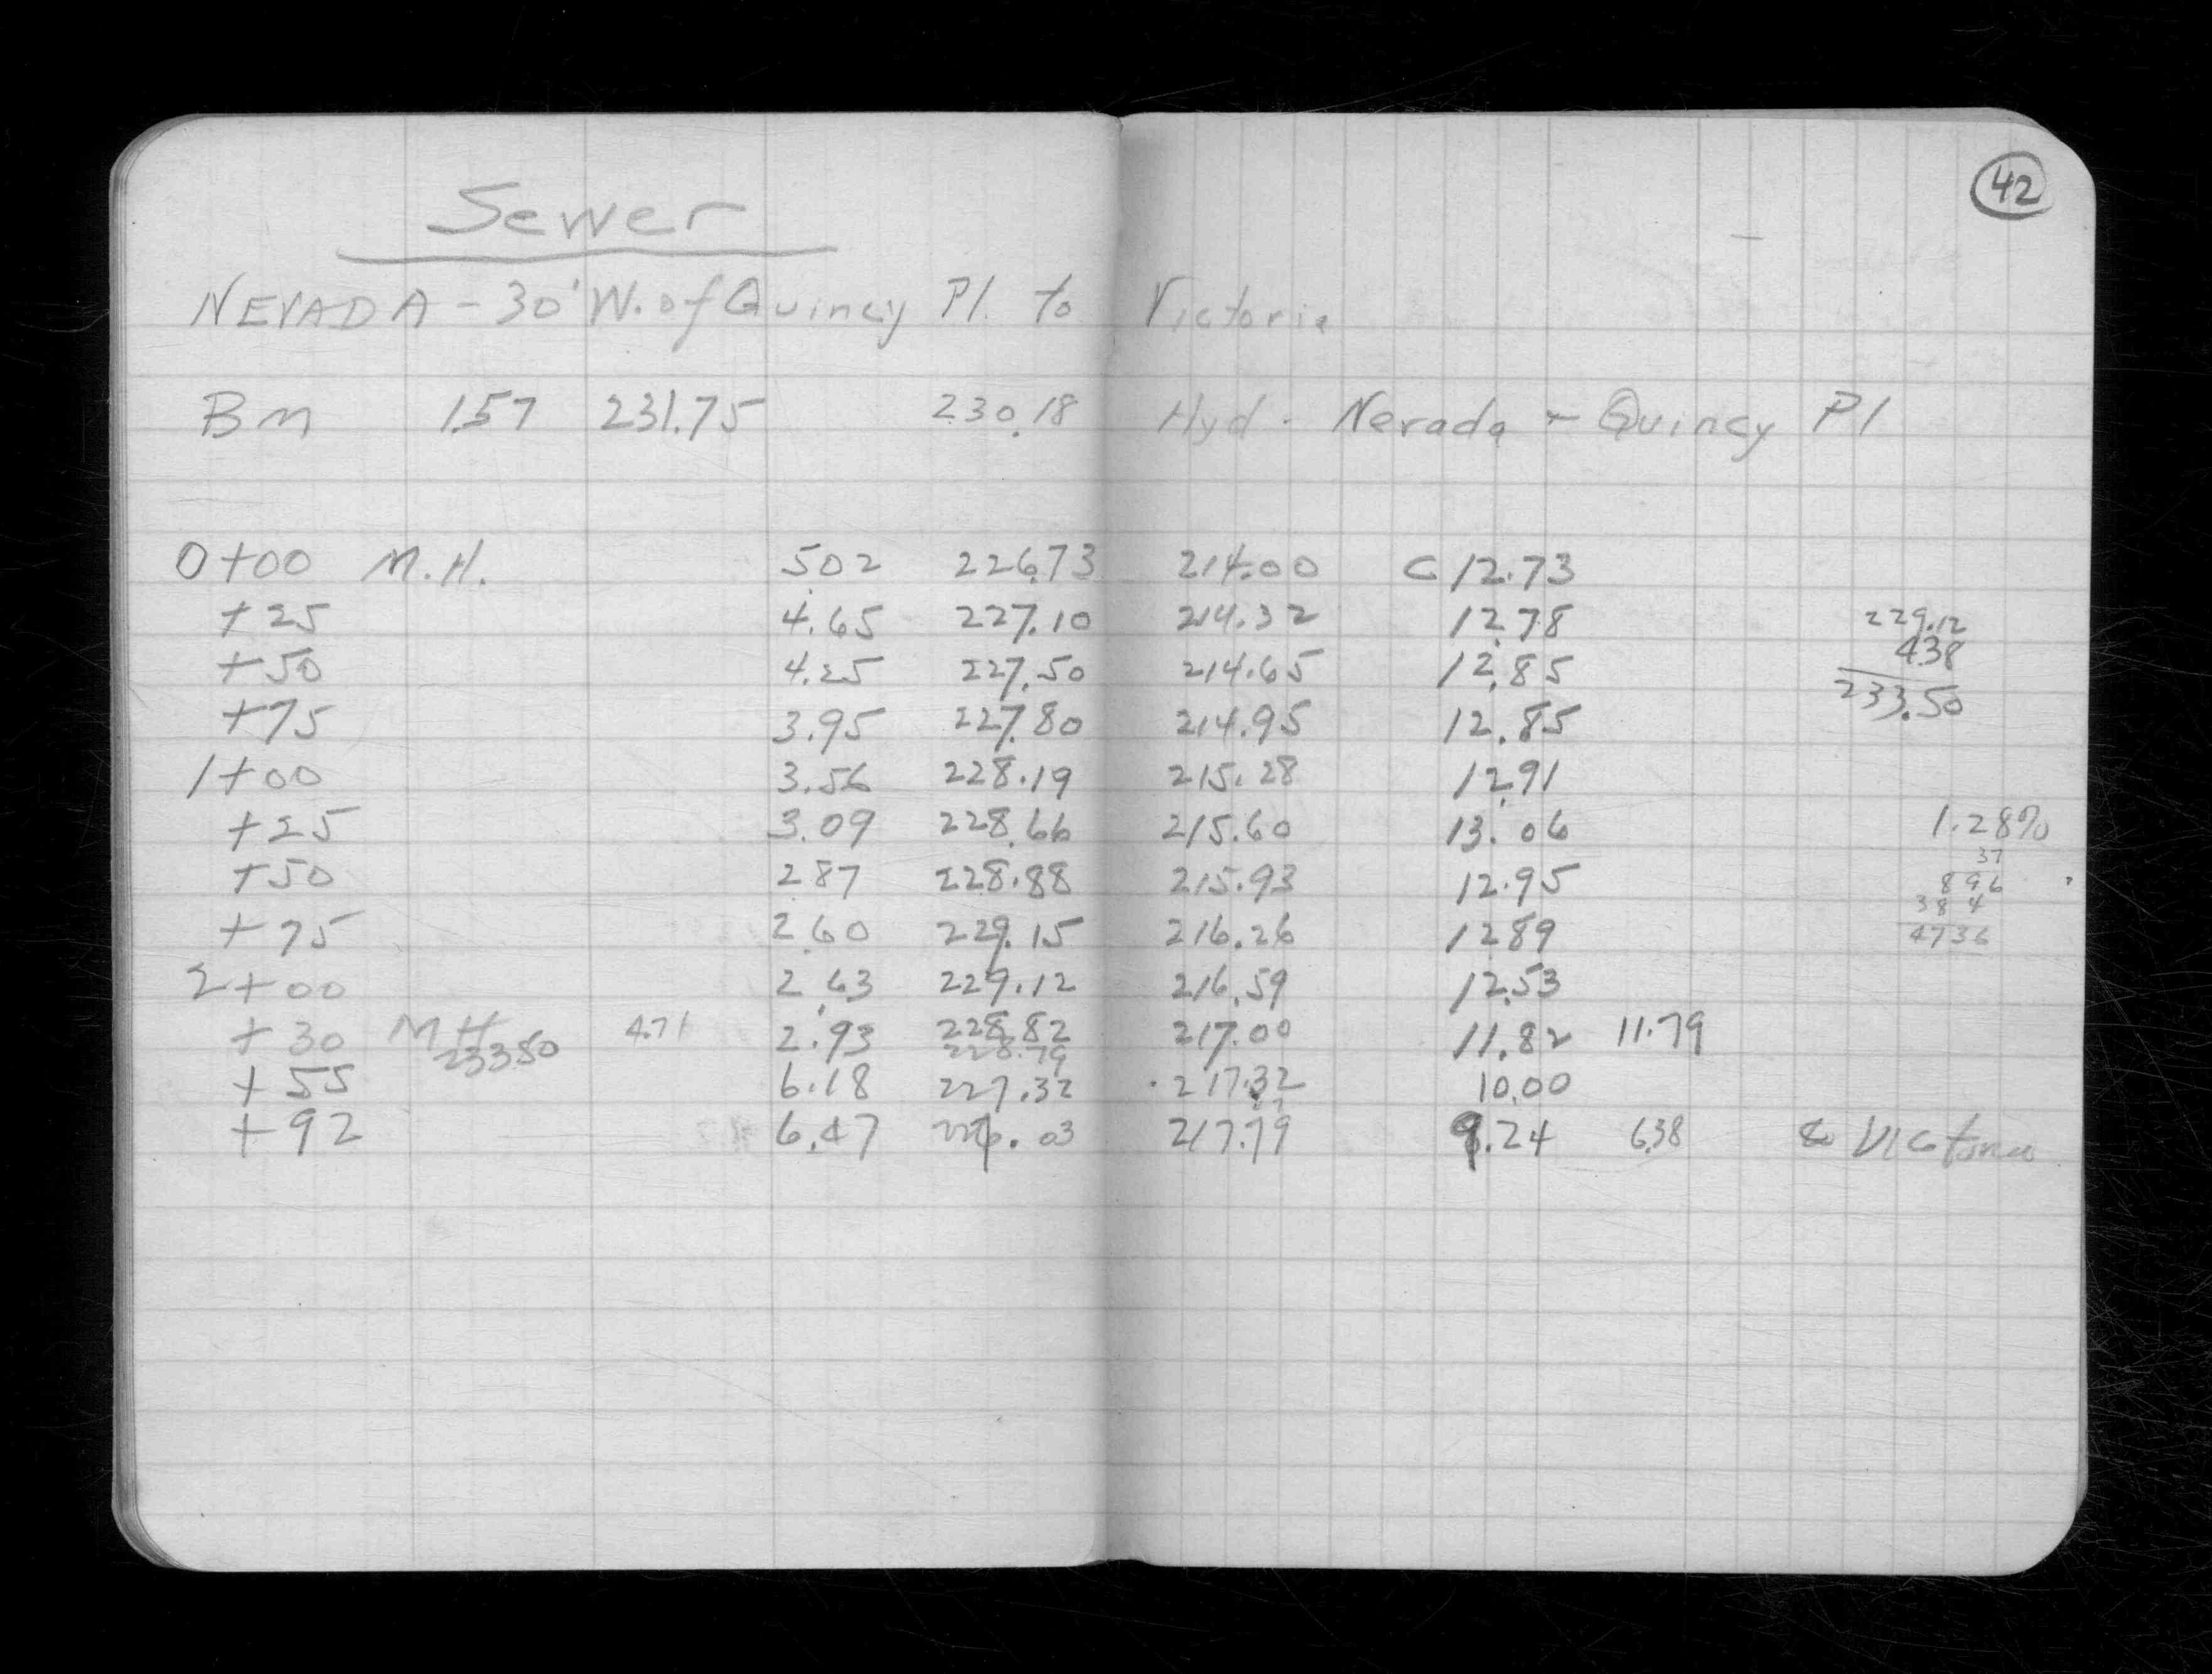 42
Sewer
NEVADA - 30' W. of Quincy Pl. to Victoria
BM 1.57 231.75 230.18 Hyd - Nevada - Quincy Pl
0+00 M.H. 5.02 226.73 214.00 C 12.73
+25 4.65 227.10 214.32 12.78 229.12
+50 4.25 227.50 214.65 12.85 4.38
+75 3.95 227.80 214.95 12.85 233.50
1+00 3.56 228.19 215.28 12.91
+25 3.09 228.66 215.60 13.06 1.28%
37
+50 2.87 228.88 215.93 12.95 896
384
+75 2.60 229.15 216.26 12.89 4736
2+00 2.63 229.12 216.59 12.53
+30 MH 4.71 2.93 228.82 217.00 11.82 11.79
233.50 228.79
+55 6.18 227.32 217.32 10.00
+92 6.47 226.03 217.79 9.24 6.38 Victoria